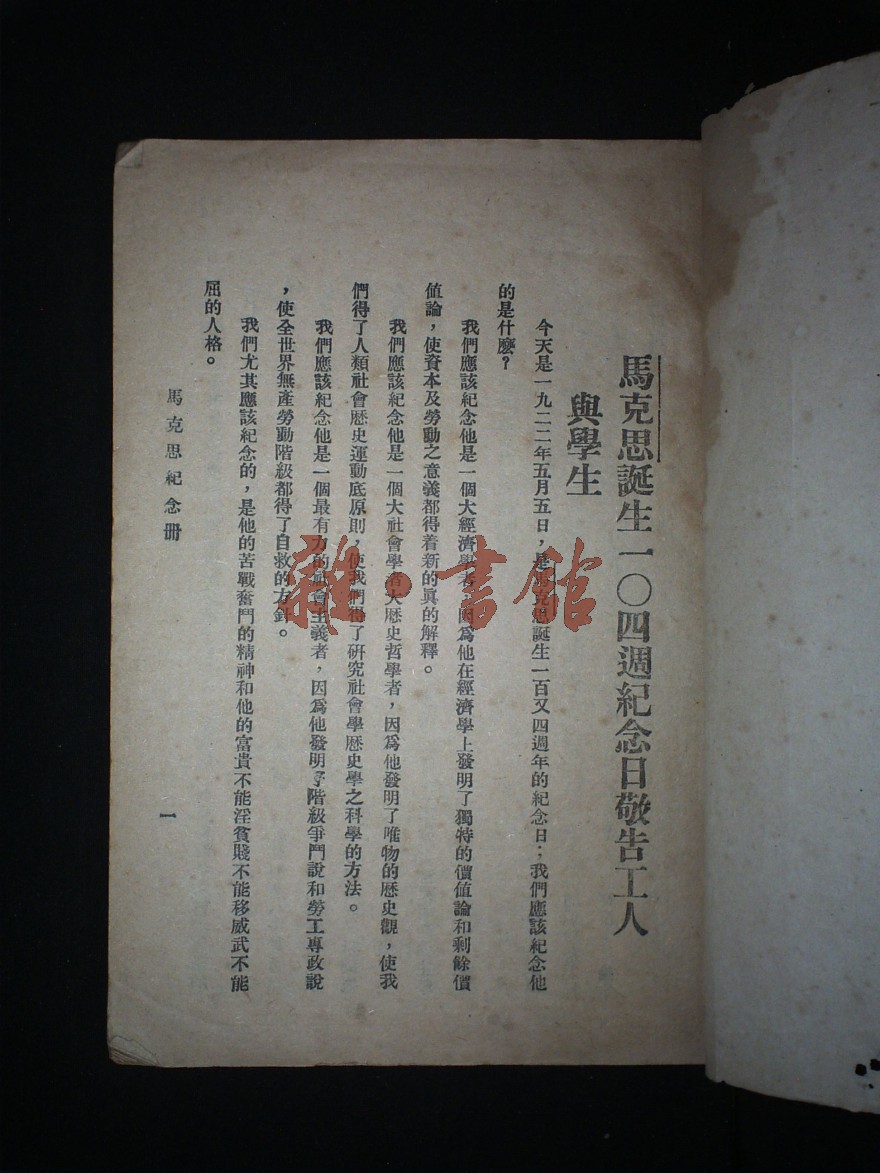 馬克思誕生一〇四週紀念日敬告工人
與學生
今天是一九二二年五月五日，是馬克思誕生一百又四週年的紀念日；我們應該紀念他
的是什麼？
我們應該紀念他是一個大經濟學者，因爲他在經濟學上發明了獨特的價值論和剩餘價
值論，使資本及勞動之意義都得着新的眞的解釋。
我們應該紀念他是一個大社會學者大歷史哲學者，因爲他發明了唯物的歷史觀，使我
們得了人類社會歷史運動底原則，使我們得了研究社會學歷史學之科學的方法。
我們應該紀念他是一個最有力的社會主義者，因爲他發明了階級爭鬥說和勞工專政說
，使全世界無產勞動階級都得了自救的方針。
我們尤其應該紀念的，是他的苦戰奮鬥的精神和他的富貴不能淫貧賤不能移威武不能
屈的人格。
馬克思紀念册
一
雜·書館